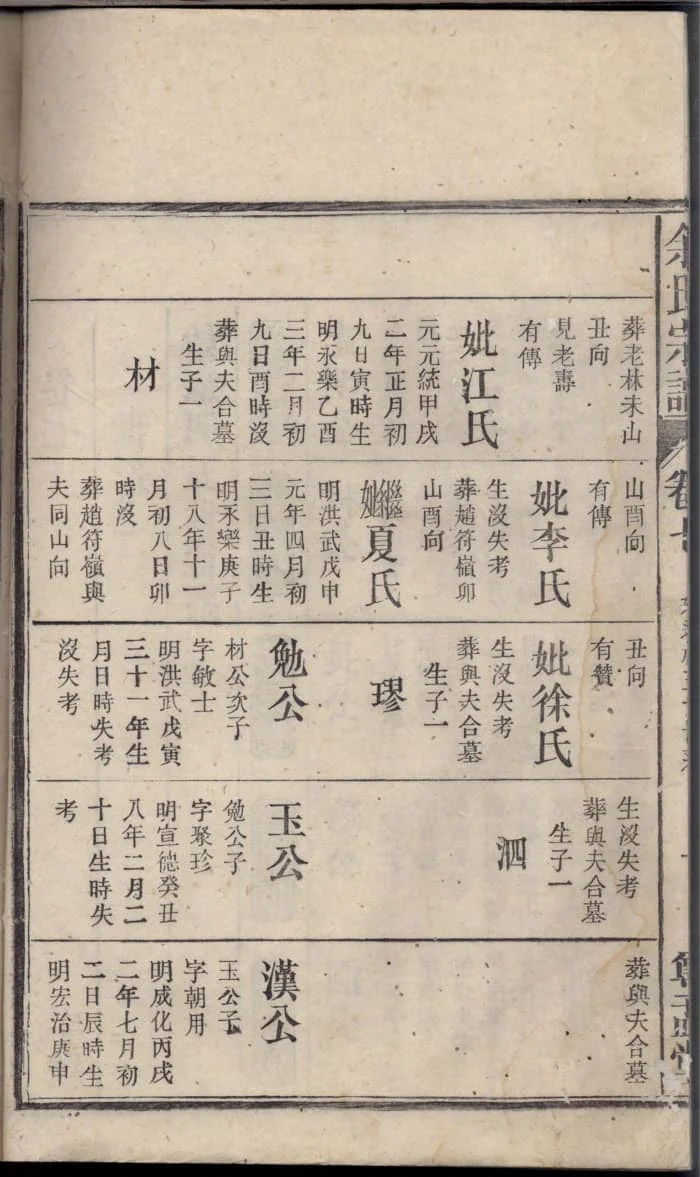 余氏宗譜
卷七
葬老林未山
丑向
見老壽
有傳
妣江氏
元元統甲戌
二年正月初
九日寅時生
明永樂乙酉
三年二月初
九日酉時沒
葬與夫合墓
生子一
材
山酉向
有傳
妣李氏
生沒失考
葬趙符嶺卯
山酉向
繼妣夏氏
明洪武戊申
元年四月初
三日丑時生
明永樂庚子
十八年十一
月初八日卯
時沒
葬趙符嶺與
夫同山向
丑向
有贊
妣徐氏
生沒失考
葬與夫合墓
生子一
璆
勉公
材公次子
字敏士
明洪武戊寅
三十一年生
月日時失考
沒失考
生沒失考
葬與夫合墓
生子一
泗
玉公
勉公子
字聚珍
明宣德癸丑
八年二月二
十日生時失
考
葬與夫合墓
漢公
玉公子
字朝用
明成化丙戌
二年七月初
二日辰時生
明宏治庚申